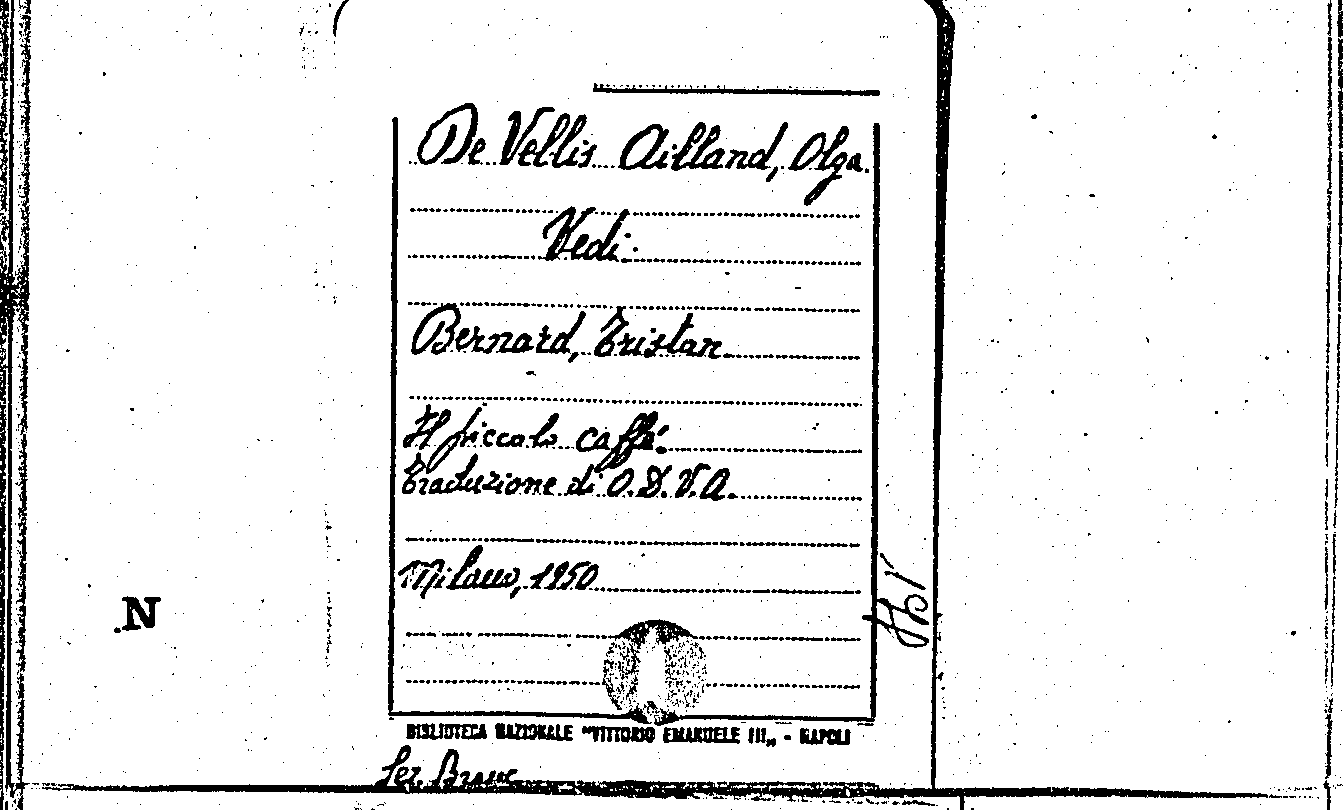 De Vellis Ailland, Olga.
Vedi:
Bernard, Tristan
Il piccolo caffè.
Traduzione di O.D.V.A.
Milano, 1950
N
BIBLIOTECA NAZIONALE "VITTORIO EMANUELE III„ - NAPOLI